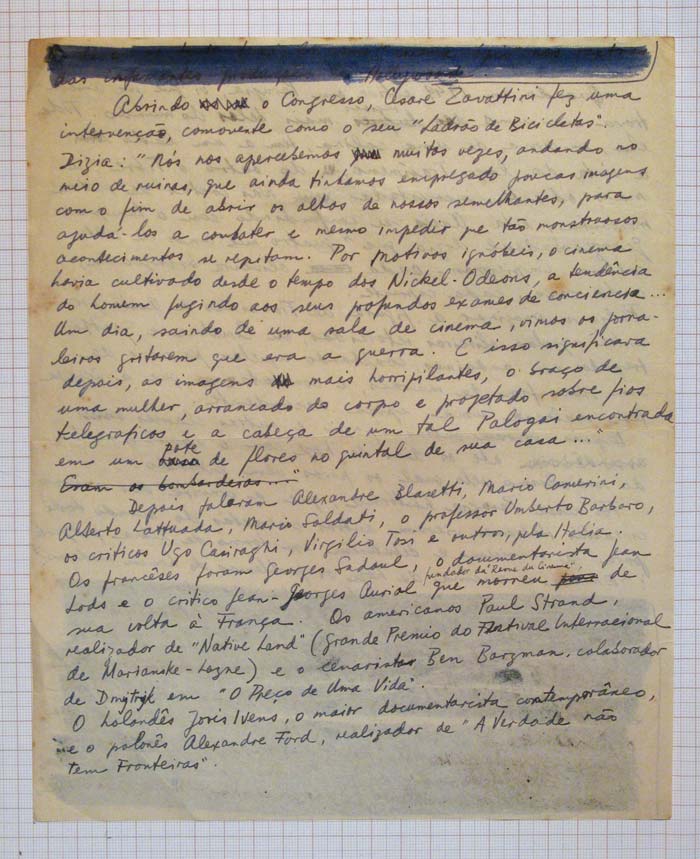 das produções Hollywood.
Abrindo o Congresso, Cesare Zavattini fez uma
intervenção, comovente como o seu "Ladrão de Bicicletas".
Dizia: "Nós nos apercebemos muitas vezes, andando no
meio de ruinas, que ainda tinhamos empregado poucas imagens
com o fim de abrir os olhos de nossos semelhantes, para
ajudá-los a combater e mesmo impedir que tão monstruosos
acontecimentos se repitam. Por motivos ignóbeis, o cinema
havia cultivado desde o tempo dos Nickel-Odeons, a tendência
do homem fugindo aos seus profundos exames de conciencia...
Um dia, saindo de uma sala de cinema, vimos os jorna-
leiros gritarem que era a guerra. E isso significara
depois, as imagens mais horripilantes, o braço de
uma mulher, arrancado do corpo e projetado sobre fios
telegraficos e a cabeça de um tal Palogai encontrada
em um pote de flores no quintal de sua casa..."
Eram os bombardeios..."
Depois falaram Alexandre Blasetti, Mario Camerini,
Alberto Lattuada, Mario Soldati, o professor Umberto Barbaro,
os criticos Ugo Casiraghi, Virgilio Tosi e outros, pela Italia.
Os francêses foram Georges Sadoul, o documentarista Jean
Lods e o critico Jean-Georges Aurial fundador da Revue du Cinema, que morreu de
sua volta à França. Os americanos Paul Strand,
realizador de "Native Land" (Grande Premio do Festival Internacional
de Marianske-Lazne) e o cenarista Ben Bargman, colaborador
de Dmytrik em "O Preço de Uma Vida".
O holandês Joris Ivens, o maior documentarista contemporâneo,
e o polonês Alexandre Ford, realizador de "A Verdade não
tem Fronteiras".